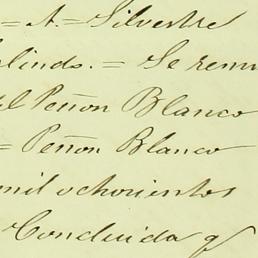 = A. = Silvestre
Galindo. = Se remi
el Peñon Blanco
= Peñon Blanco
mil ochocientos
Concluida q